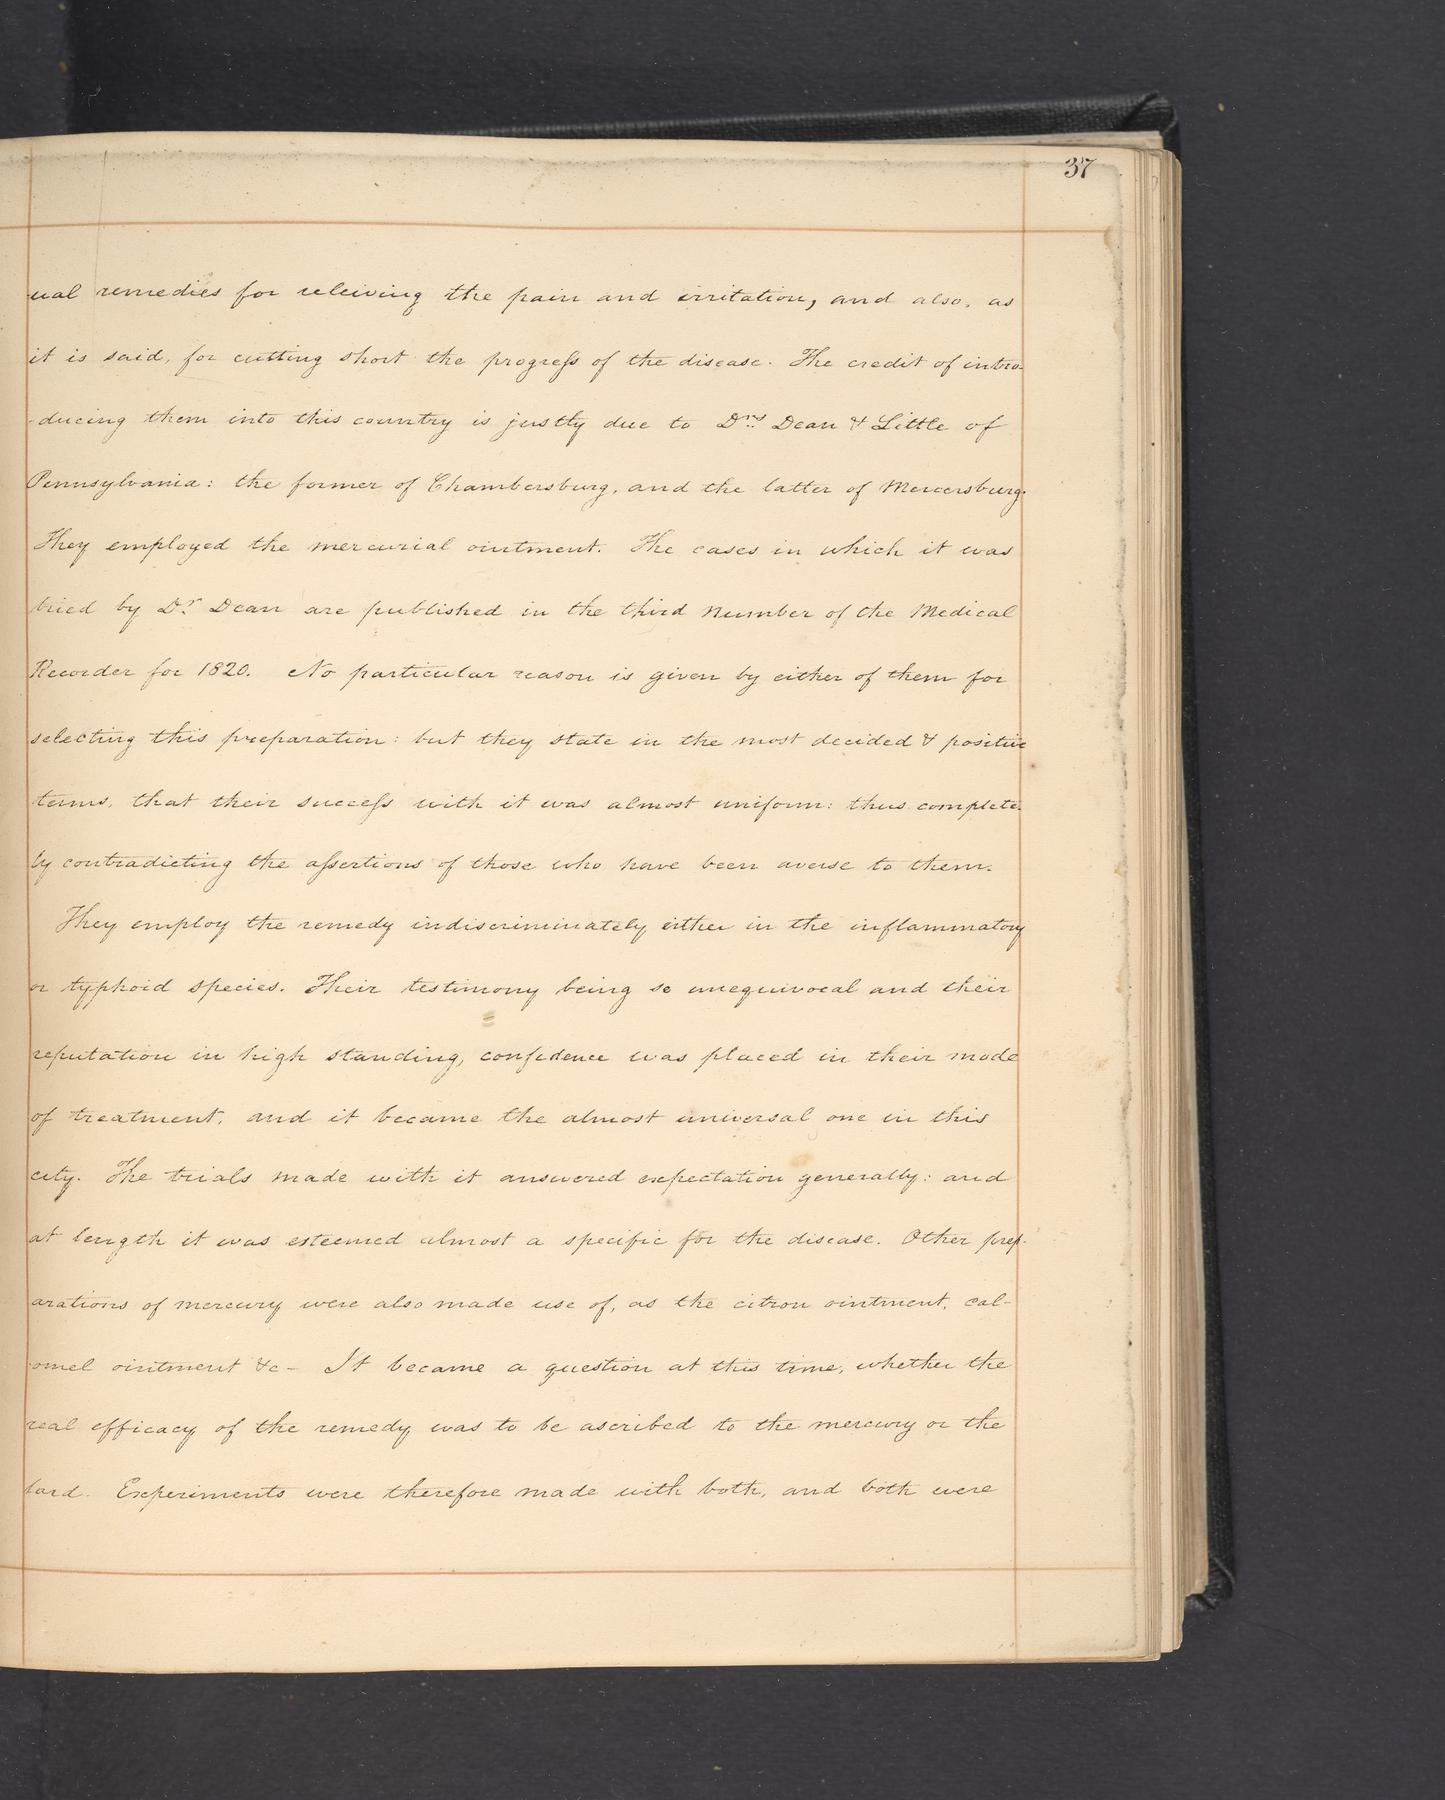 37
ual remedies for releiving the pain and irritation, and also, as
it is said, for cutting short the progress of the disease. The credit of intro-
-ducing them into this country is justly due to Drs Dean & Little of
Pennsylvania: the former of Chambersburg, and the latter of Mercersburg.
They employed the mercurial ointment. The cases in which it was
tried by Dr Dean are published in the third number of the Medical
Recorder for 1820. No particular reason is given by either of them for
selecting this preparation: but they state in the most decided & positive
terms, that their success with it was almost uniform: thus complete-
ly contradicting the assertions of those who have been averse to them.
They employ the remedy indiscriminately either in the inflammatory
or typhoid species. Their testimony being so unequivocal and their
reputation in high standing, confidence was placed in their mode
of treatment, and it became the almost universal one in this
city. The trials made with it answered expectation generally: and
at length it was esteemed almost a specific for the disease. Other prep-
arations of mercury were also made use of, as the citron ointment, cal-
-omel ointment &c - It became a question at this time, whether the
real efficacy of the remedy was to be ascribed to the mercury or the
lard. Experiments were therefore made with both, and both were